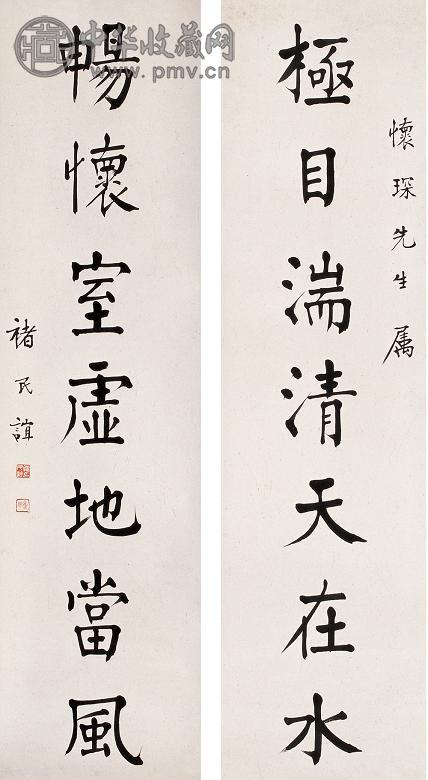 懷琛先生属
極目湍清天在水
暢懷室虚地當風
褚民誼
中华收藏网
www.pmv.cn